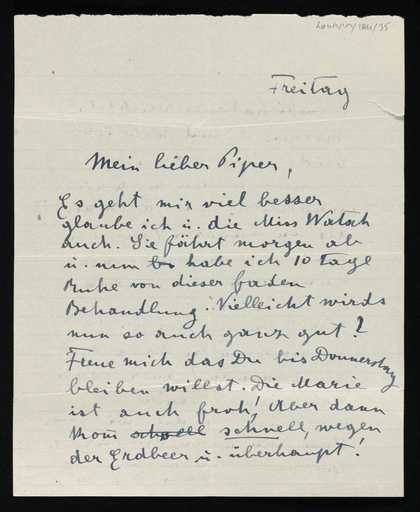 Freitag
Mein lieber Piper,
Es geht mir viel besser
glaube ich u. die Miss Watsch
auch. Sie fährt morgen ab
u. nun habe ich 10 tage
Ruhe von dieser faden
Behandlung. Vielleicht wirds
nun so auch ganz gut?
Freue mich das Du bis Donnerstag
bleiben willst. Die Marie
ist auch froh! Aber dann
kom schnell schnell, wegen
der Erdbeer u. überhaupt!